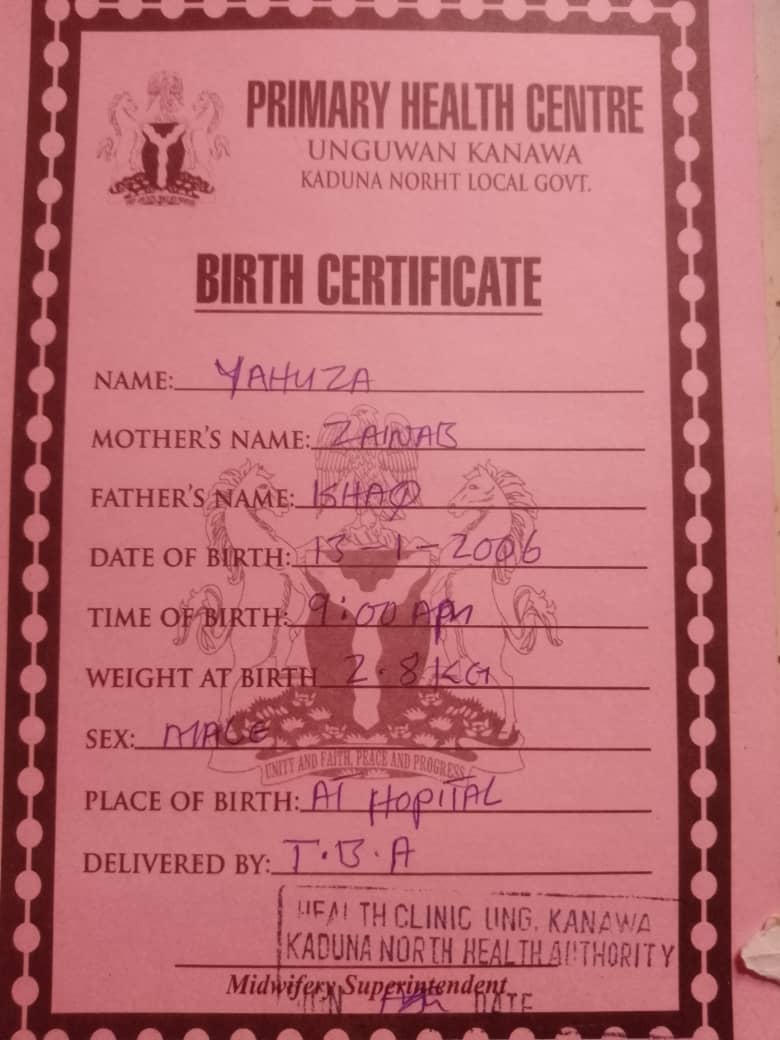 PRIMARY HEALTH CENTRE
UNGUWAN KANAWA
KADUNA NORHT LOCAL GOVT.
BIRTH CERTIFICATE
NAME: YAHUZA
MOTHER'S NAME: ZAINAB
FATHER'S NAME: ISHAQ
DATE OF BIRTH: 13-1-2006
TIME OF BIRTH: 9:00 AM
WEIGHT AT BIRTH 2.8KG
SEX: MALE
UNITY AND FAITH, PEACE AND PROGRESS
PLACE OF BIRTH: AT HOPITAL
DELIVERED BY: T.B.A
HEALTH CLINIC UNG. KANAWA
KADUNA NORTH HEALTH AUTHORITY
Midwifery Superintendent
DATE